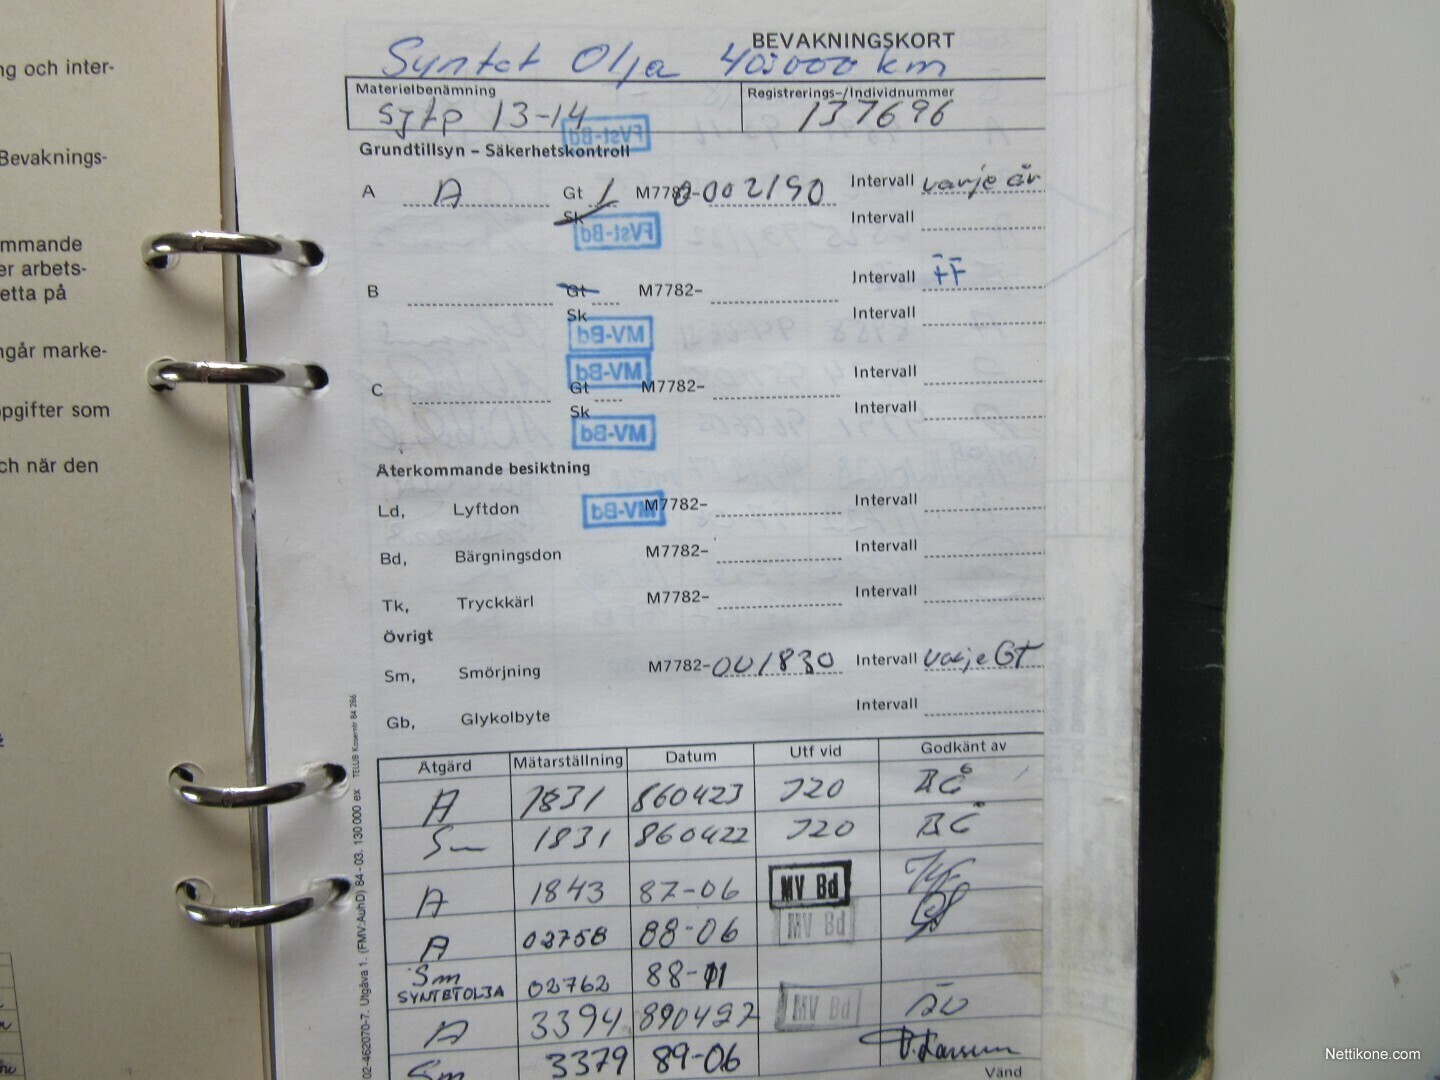 ng och inter-
Bevaknings-
mmande
er arbets-
etta på
ngår marke-
ppgifter som
ch när den
BEVAKNINGSKORT
Syntet Olja 405000 km
Materielbenämning Registrerings-/Individnummer
sjtp 13-14 137696
FVst-Bd
Grundtillsyn – Säkerhetskontroll
A A Gt 1 M7782-002190 Intervall varje år
Sk Intervall
FVst-Bd
B Gt M7782- Intervall FF
Sk Intervall
MV-Bd
MV-Bd
C Gt M7782- Intervall
Sk Intervall
MV-Bd
Återkommande besiktning
Ld, Lyftdon M7782- Intervall
MV-Bd
Bd, Bärgningsdon M7782- Intervall
Tk, Tryckkärl M7782- Intervall
Övrigt
Sm, Smörjning M7782-001830 Intervall varje GT
Gb, Glykolbyte Intervall
Åtgärd Mätarställning Datum Utf vid Godkänt av
A 1831 860423 J20
Sm 1831 860422 J20
A 1843 87-06 MV Bd
A 02758 88-06 MV Bd
Sm
SYNTETOLJA 02762 88-11
A 3394 890427 MV Bd
Sm 3379 89-06
Vänd
02-462070-7. Utgåva 1. (FMV:AuhD) 84-03. 130 000 ex TELUB Kosentr 84 286
Nettikone.com